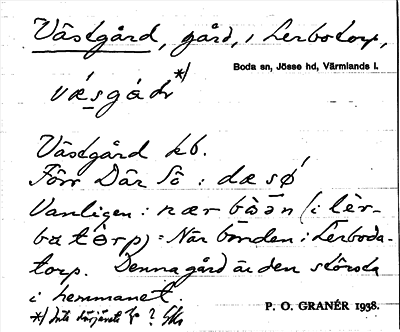 Västgård, gård, i Lerbotorp,
Boda sn, Jösse hd, Värmlands l.
væsgạ̊ḍr */
Västgård kb.
Förr Där Sö : dæ sø
Vanligen : nær bòn (i lèr-
batòrp) = När bonden i Lerboda-
torp. Denna gård är den största
i hemmanet.
*/ Inte därjämte ? 
P. O. GRANÉR 1938.